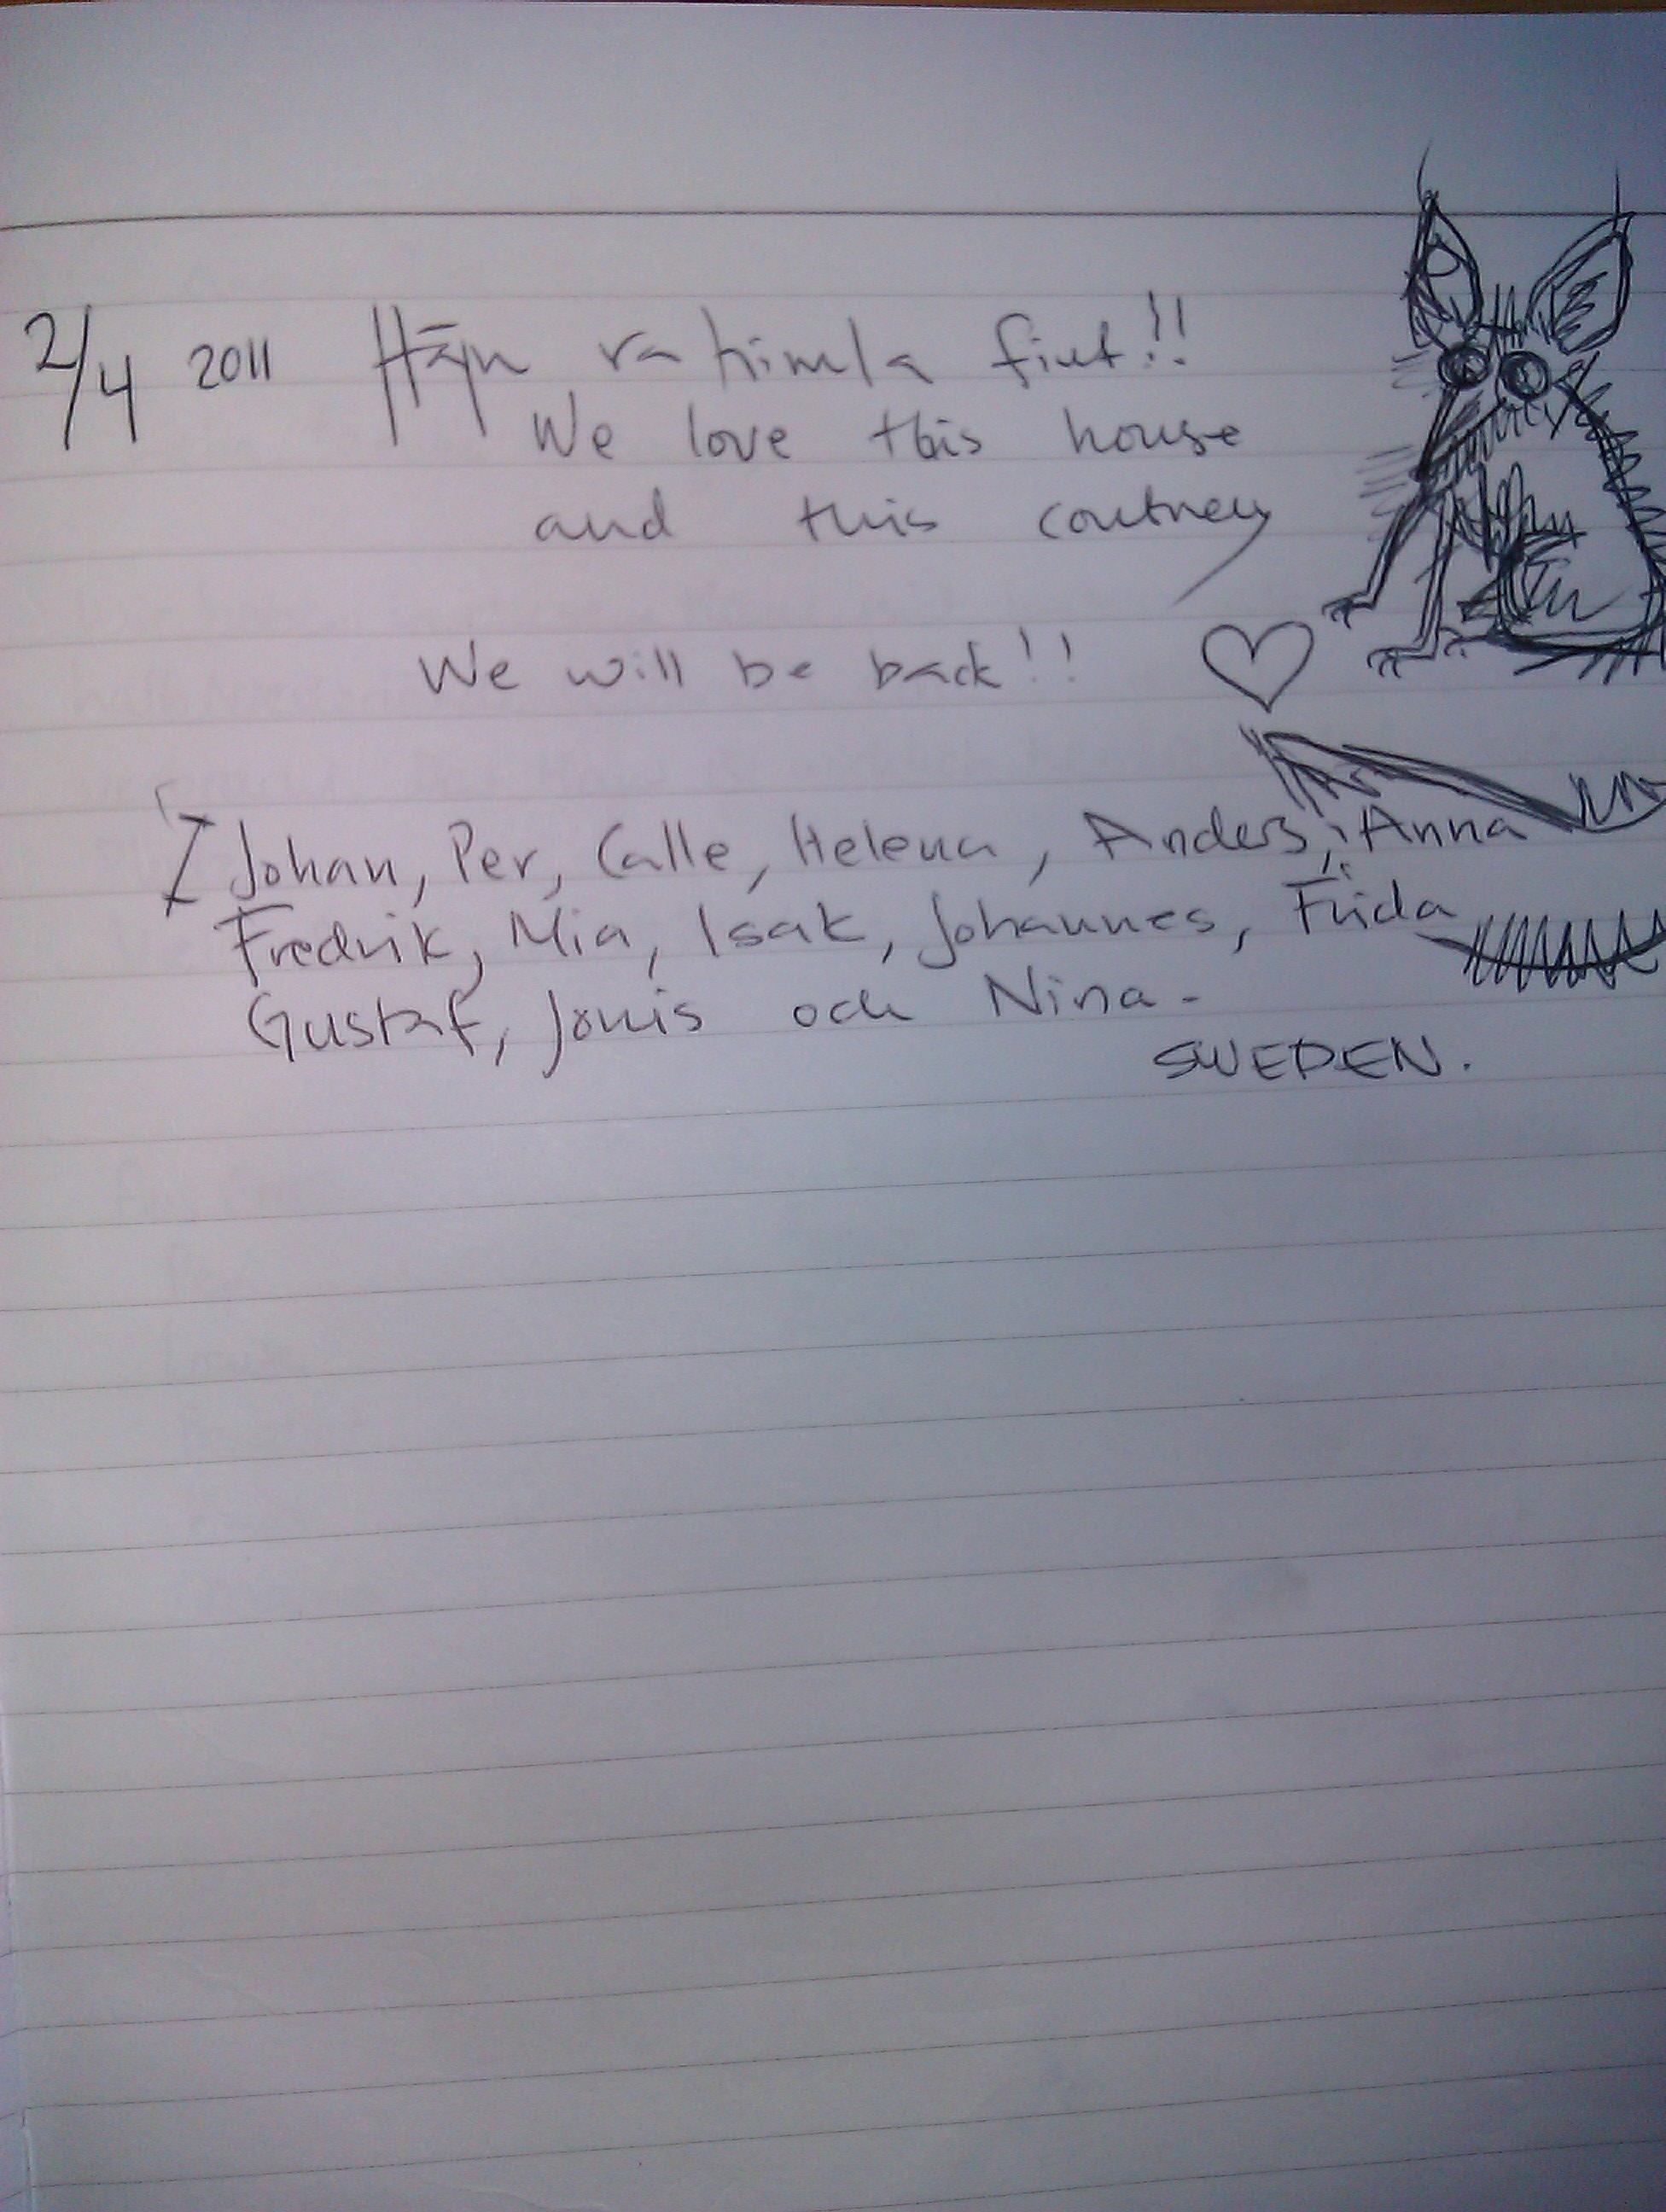 2/4 2011 Häjn va himla fint!!
We love this house
and this coutney
We will be back!!
Johan, Per, Calle, Helena, Anders, Anna
Fredrik, Mia, Isak, Johannes, Frida
Gustaf, Jonis och Nina.
SWEDEN.